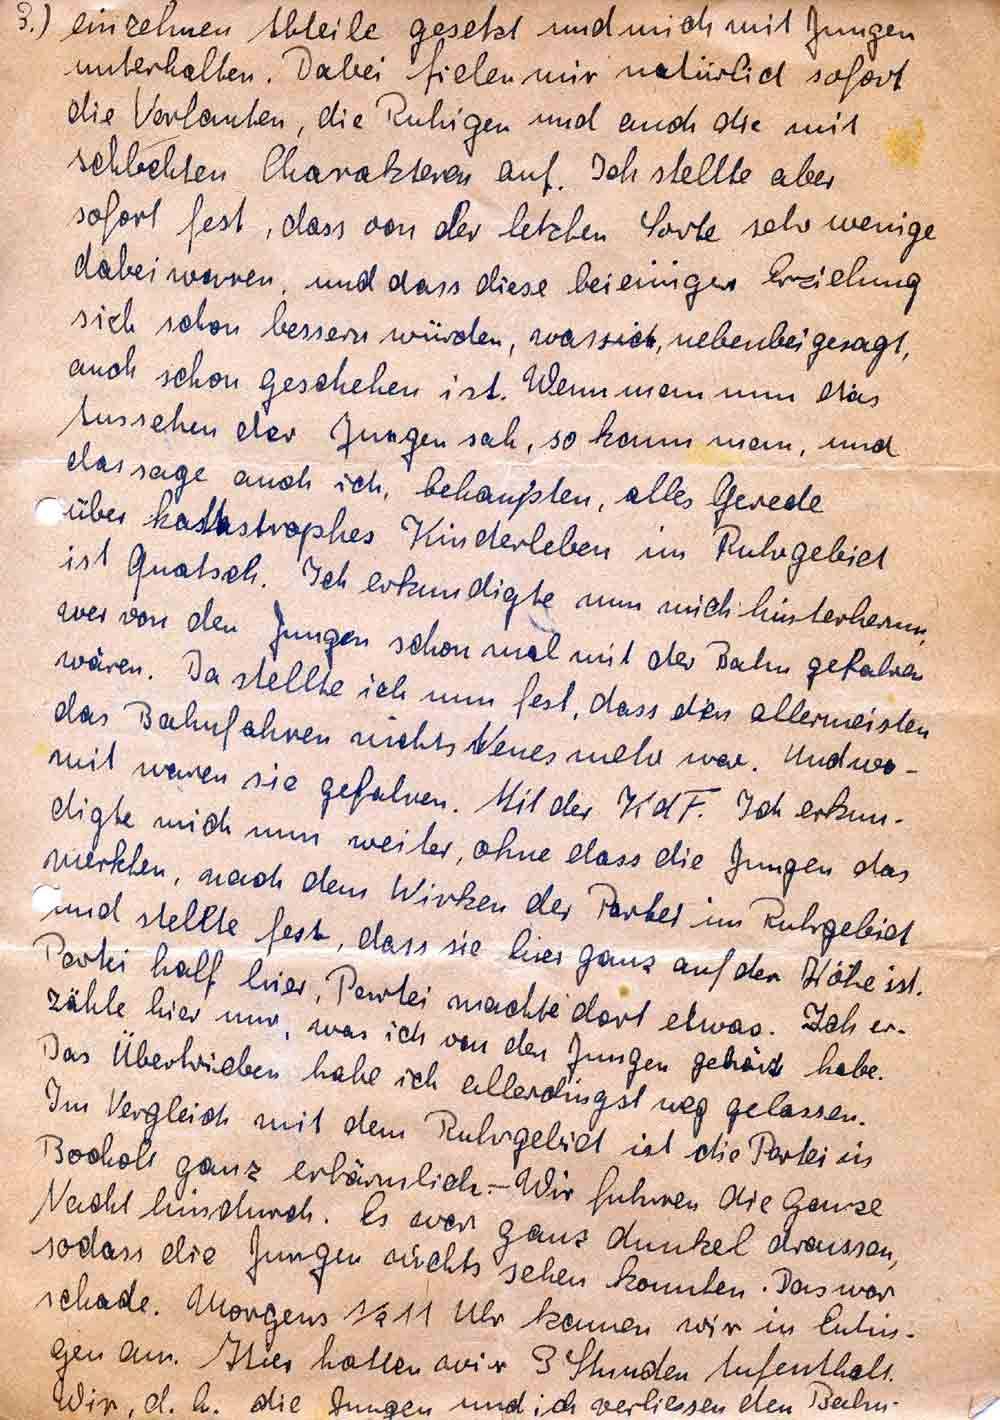 3.) einzelnen Abteile gesetzt und mich mit Jungen
unterhalten. Dabei fielen mir natürlich sofort
die Vorlauten, die Ruhigen und auch die mit
schlechten Charakteren auf. Ich stellte aber
sofort fest, dass von der letzten Sorte sehr wenige
dabei warren, und dass diese bei einiger Erziehung
sich schon bessern würden, was sich, nebenbei gesagt,
auch schon geschehen ist. Wenn man nun das
Aussehen der Jungen sah, so kann man, und
das sage auch ich, behaupten, alles Gerede
über katastrophes Kinderleben im Ruhrgebiet
ist Quatsch. Ich erkundigte nun mich hinterherum,
wer von den Jungen schon mal mit der Bahn gefahren
wären. Da stellte ich nun fest, dass den allermeisten
das Bahnfahren nichts Neues mehr war. Und wo-
mit waren sie gefahren. Mit der KdF. Ich erkun-
digte mich nun weiter, ohne dass die Jungen das
merkten, nach dem Wirken der Partei im Ruhrgebiet
und stellte fest, dass sie hier ganz auf der Höhe ist.
Partei half hier, Partei machte dort etwas. Ich er-
zähle hier nur, was ich von den Jungen gehört habe.
Das Übertrieben habe ich allerdingst weg gelassen.
Im Vergleich mit dem Ruhrgebiet ist die Partei in
Bocholt ganz erbärmlich. – Wir fuhren die ganze
Nacht hindurch. Es war ganz dunkel draussen,
sodass die Jungen nichts sehen konnten. Das war
schade. Morgens ½ 11 Uhr kamen wir in Eutin-
gen an. Hier hatten wir 3 Stunden Aufenthalt.
Wir, d. h. die Jungen und ich verliessen den Bahn-